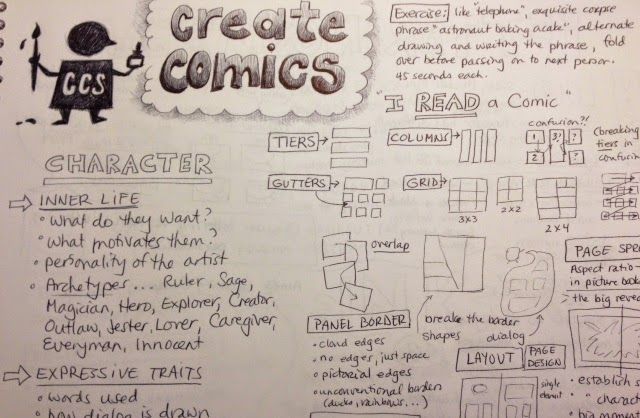 CCS
create
comics
Exercise: like "telephone", exquisite corpse
phrase "astronaut baking a cake", alternate
drawing and writing the phrase, fold
over before passing on to next person.
45 seconds each.
"I READ a Comic"
TIERS
COLUMNS
confusion?!
1
3?
?
2
?
(breaking
tiers in
GUTTERS
GRID
3x3
2x2
2x4
CHARACTER
INNER LIFE
• what do they want?
• what motivates them?
• personality of the artist
• Archetypes... Ruler, Sage,
Magician, Hero, Explorer, Creator,
Outlaw, Jester, Lover, Caregiver,
Everyman, Innocent
EXPRESSIVE TRAITS
• words used
• how dialog is drawn
overlap
breake the border
shapes
dialog
PANEL BORDER
• cloud edges
• no edges, just space
• pictorial edges
• unconventional border
(ducks, rainbows...)
LAYOUT
PAGE
DESIGN
single
PAGE
Aspect ratio
in picture
the big
• establish
"
big